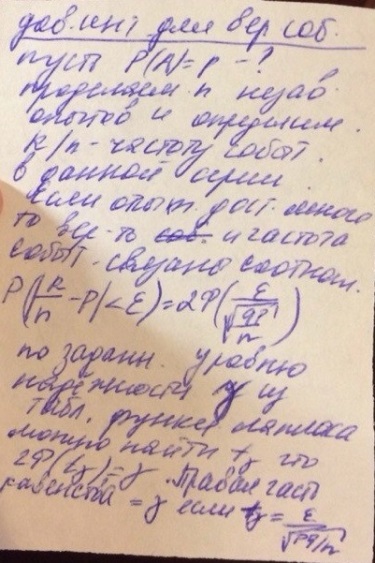 дов. инт для вер соб.
пусть P(A)=p - ?
проделаем n незав.
опытов и определим.
k/n - частоту событ.
в данной серии.
Если опыт. дост. много
то вер-ть и частота
событ. связаны соотнош.
P(|k/n - P| < ε) = 2Ф(ε/√(qp/n))
по заданн. уровню
надежности γ из
табл. функц лапласа
можно найти tγ что
2Ф(tγ)=γ. Правая часть
равенства = γ если tγ = ε/√(pq/n)